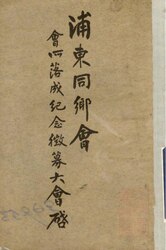 浦東同鄉會
會所落成紀念徵募大會啓